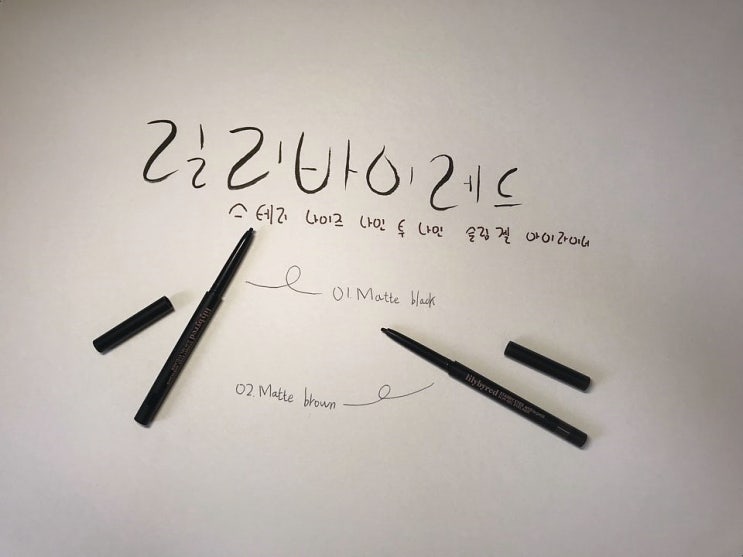 릴리바이레드
스테리 나이즈 나인 투 나인 슬림 젤 아이라이너
01. Matte black
lilybyred
lilybyred
02. Matte brown